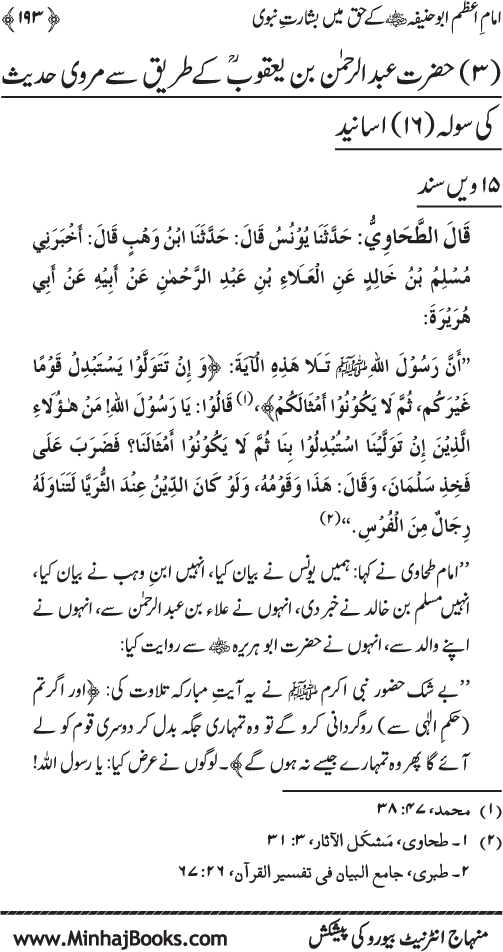 امامِ اعظم ابو حنیفہ ؓ کے حق میں بشارتِ نبوی ﴿۱۹۳﴾
(۳) حضرت عبد الرحمٰن بن یعقوبؒ کے طریق سے مروی حدیث
کی سولہ (۱۶) اسانید
۱۵ ویں سند
قَالَ الطَّحَاوِيُّ: حَدَّثَنَا يُوْنُسُ قَالَ: حَدَّثَنَا ابْنُ وَهْبٍ قَالَ: أَخْبَرَنِي
مُسْلِمُ بْنُ خَالِدٍ عَنِ الْعَلَاءِ بْنِ عَبْدِ الرَّحْمٰنِ عَنْ أَبِيْهِ عَنْ أَبِي
هُرَيْرَةَ:
”أَنَّ رَسُوْلَ اللهِ ﷺ تَلَا هَذِهِ الْآيَةَ: ﴿وَ إِنْ تَتَوَلَّوْا يَسْتَبْدِلْ قَوْمًا
غَيْرَكُم، ثُمَّ لَا يَكُوْنُوْا أَمْثَالَكُمْ﴾، (۱) قَالُوْا: يَا رَسُوْلَ اللهِ! مَنْ هٰؤُلَاءِ
الَّذِيْنَ إِنْ تَوَلَّيْنَا اسْتُبْدِلُوْا بِنَا ثُمَّ لَا يَكُوْنُوْا أَمْثَالَنَا؟ فَضَرَبَ عَلَى
فَخِذِ سَلْمَانَ، وَقَالَ: هَذَا وَقَوْمُهُ، وَلَوْ كَانَ الدِّيْنُ عِنْدَ الثُّرَيَّا لَتَنَاوَلَهُ
رِجَالٌ مِنَ الْفُرْسِ.“ (۲)
’’امام طحاوی نے کہا: ہمیں یونس نے بیان کیا، انہیں ابنِ وہب نے بیان کیا،
انہیں مسلم بن خالد نے خبر دی، انہوں نے علاء بن عبد الرحمٰن سے، انہوں نے
اپنے والد سے، انہوں نے حضرت ابو ہریرہ ؓ سے روایت کیا:
’’بے شک حضور نبی اکرم ﷺ نے یہ آیتِ مبارکہ تلاوت کی: ﴿اور اگر تم
(حکمِ الٰہی سے) روگردانی کرو گے تو وہ تمہاری جگہ بدل کر دوسری قوم کو لے
آئے گا پھر وہ تمہارے جیسے نہ ہوں گے﴾۔ لوگوں نے عرض کیا: یا رسول اللہ!
(۱) محمد، ۴۷: ۳۸
(۲) ۱۔ طحاوی، مشکل الآثار، ۳: ۳۱
۲۔ طبری، جامع البیان فی تفسیر القرآن، ۲۶: ۶۷
منہاج انٹرنیٹ بیورو کی پیشکش www.MinhajBooks.com